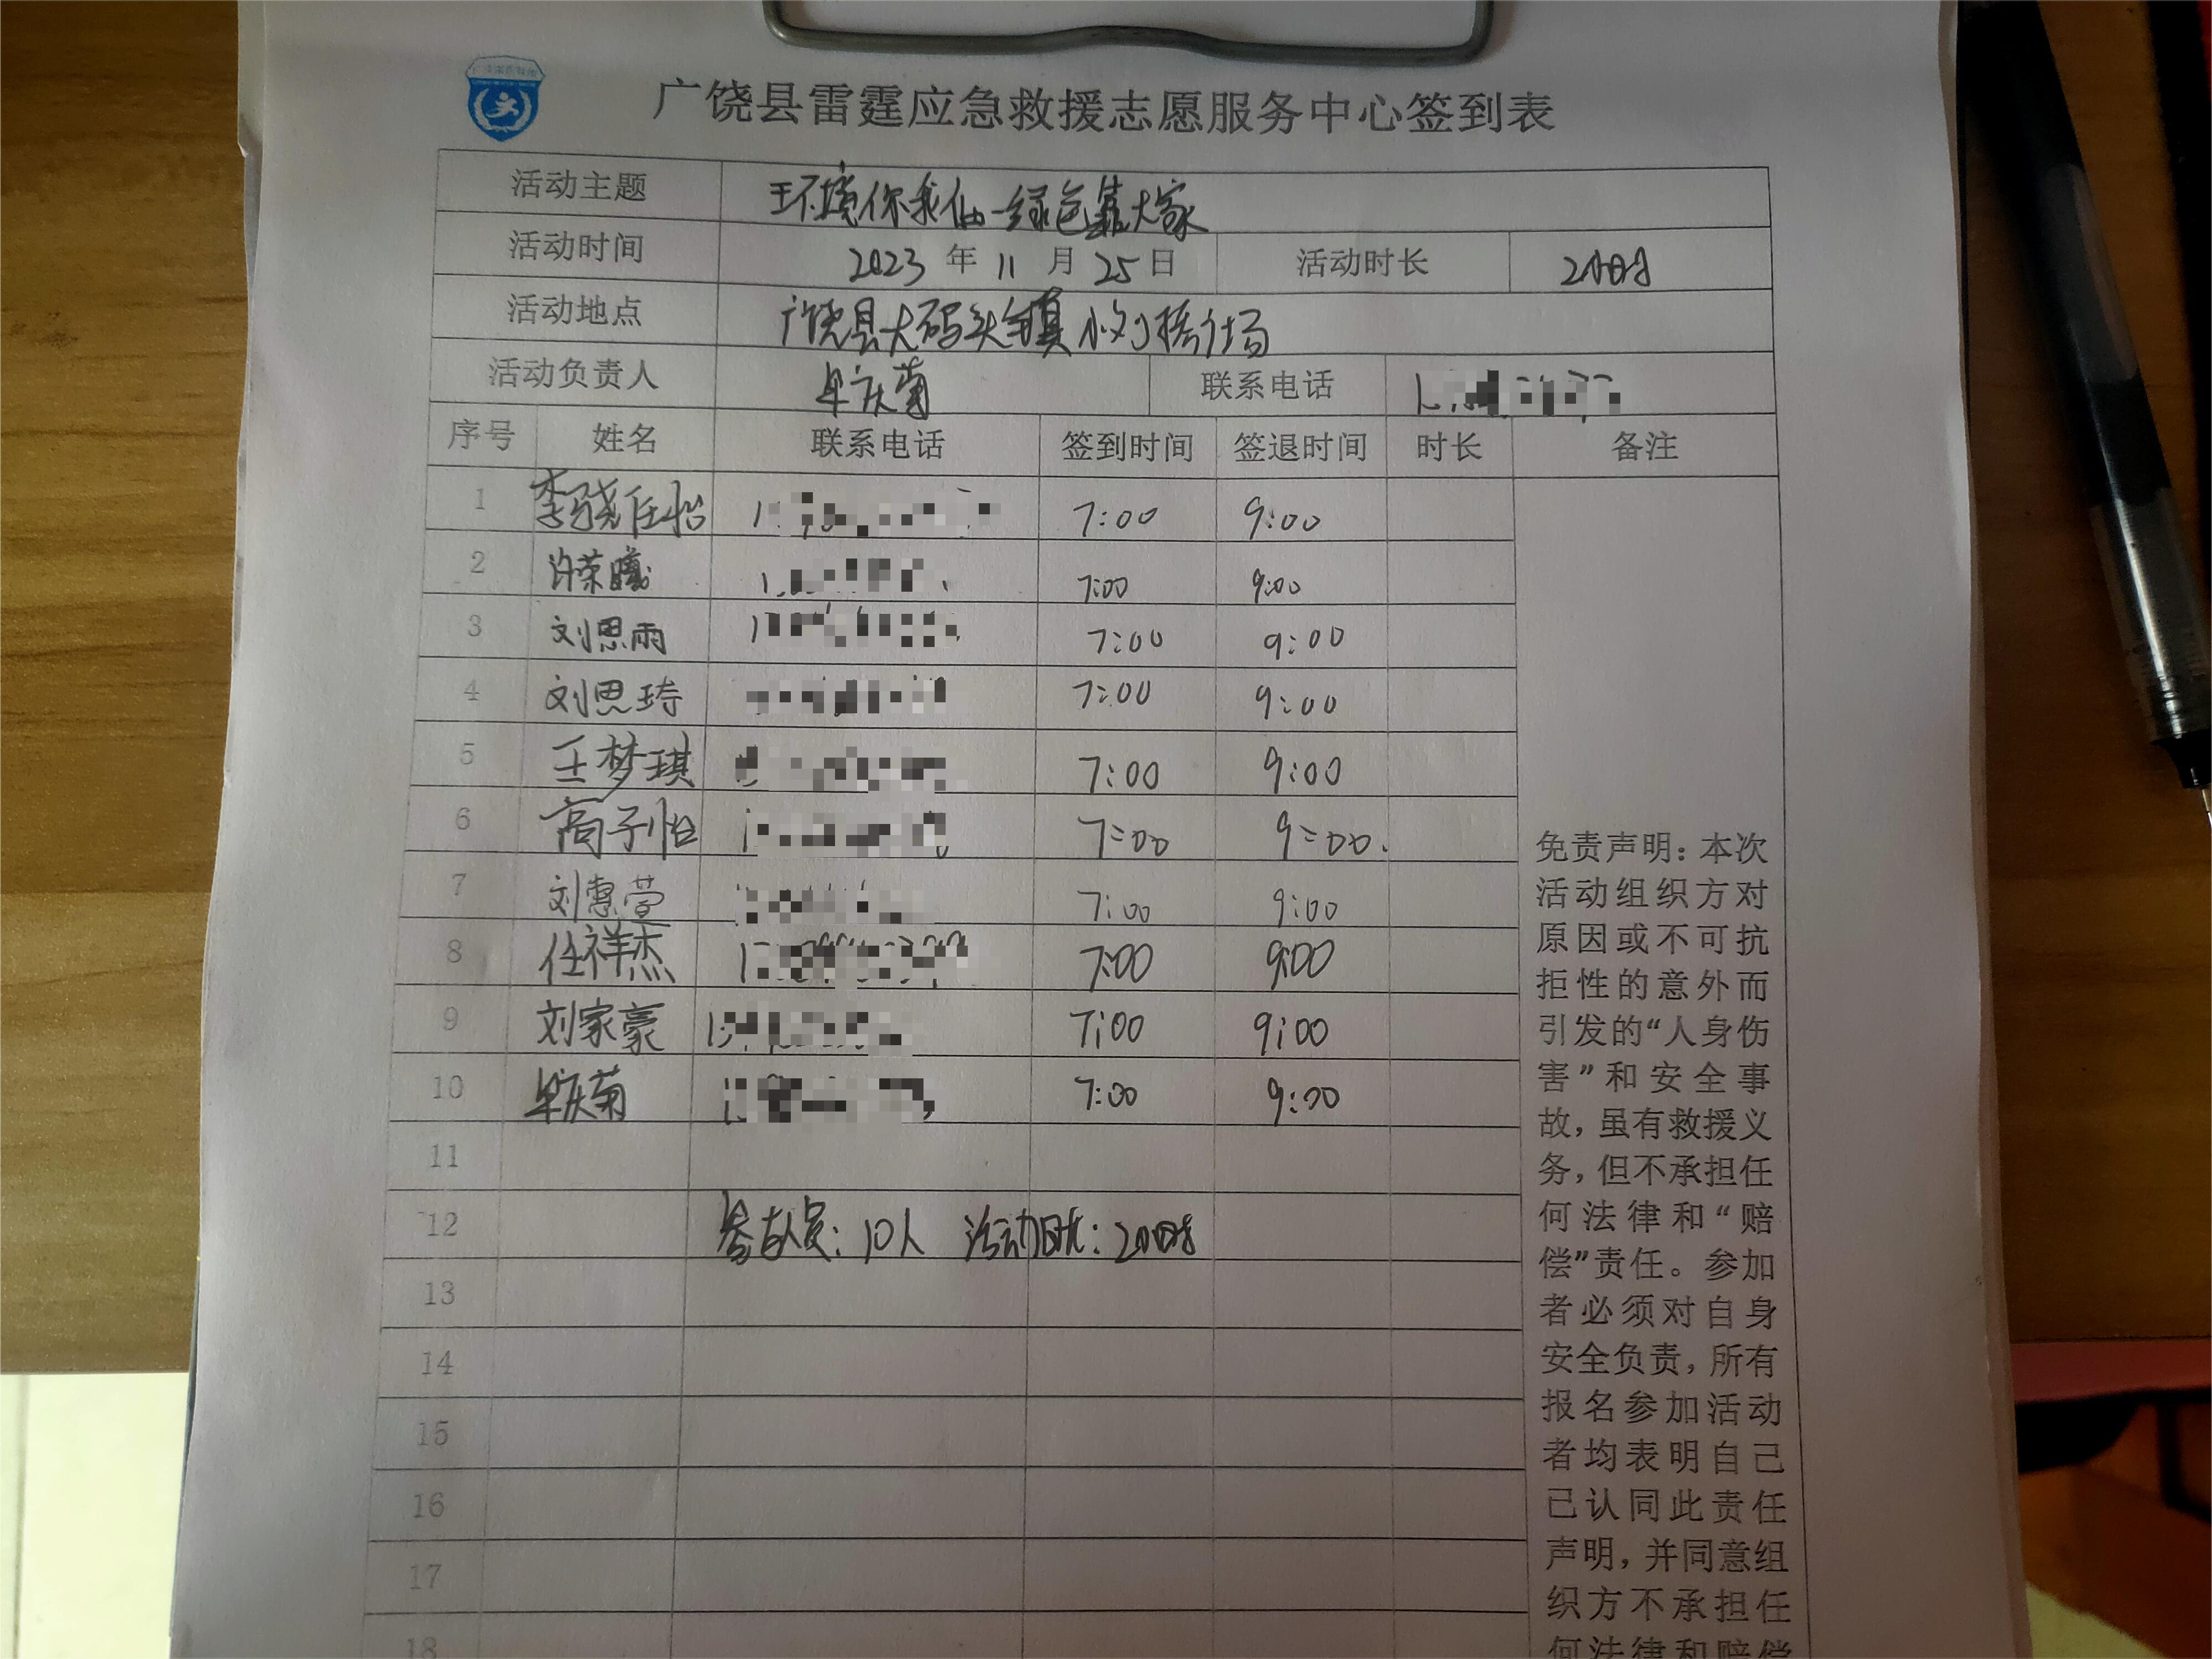 广饶县雷霆应急救援志愿服务中心签到表
活动主题 环境你我他 绿色靠大家
活动时间 2023 年 11 月 25 日 活动时长 2小时
活动地点 广饶县大码头镇
活动负责人 庆菊 联系电话
序号 姓名 联系电话 签到时间 签退时间 时长 备注
1 李骁任怡 7:00 9:00
2 许荣 7:00 9:00
3 刘思雨 7:00 9:00
4 刘思琦 7:00 9:00
5 王梦琪 7:00 9:00
6 高子怡 7:00 9:00.
7 刘惠萱 7:00 9:00
8 任祥杰 7:00 9:00
9 刘家豪 7:00 9:00
10 庆菊 7:00 9:00
11
12 参与人员：10人 活动时长：2小时
13
14
15
16
17
18
免责声明：本次
活动组织方对
原因或不可抗
拒性的意外而
引发的“人身伤
害”和安全事
故，虽有救援义
务，但不承担任
何法律和“赔
偿”责任。参加
者必须对自身
安全负责，所有
报名参加活动
者均表明自己
已认同此责任
声明，并同意组
织方不承担任
何法律和赔偿